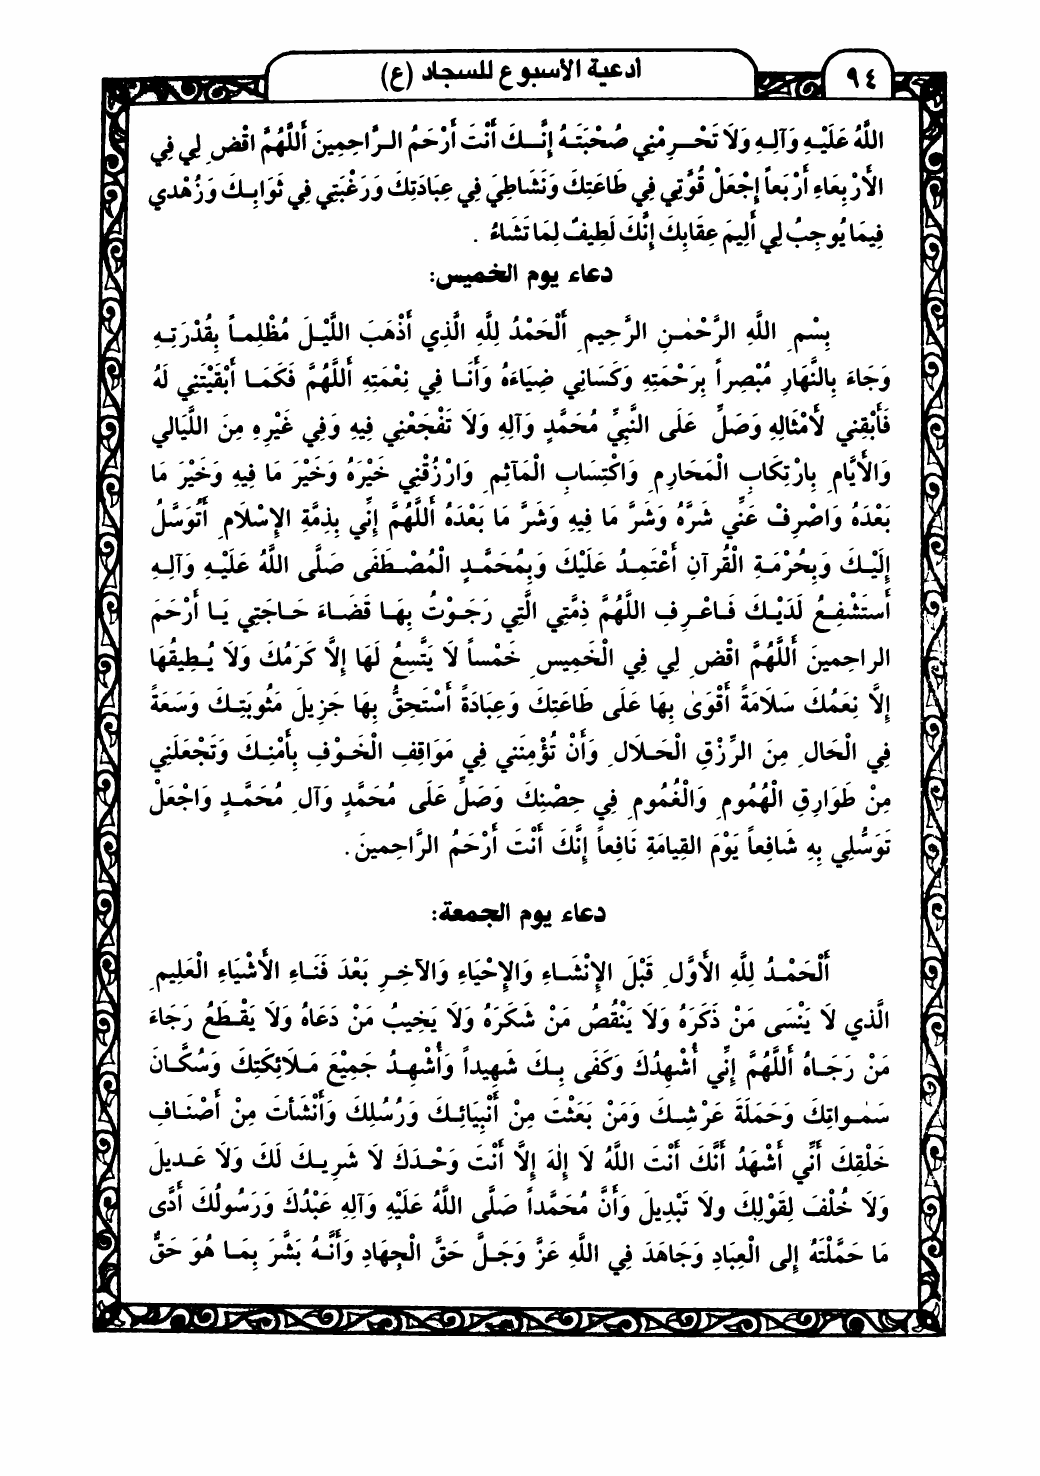 ٩٤
أدعية الأسبوع للسجاد (ع)
اللَّهُ عَلَيْهِ وَآلِهِ وَلَا تَحْرِمْنِي صُحْبَتَهُ إِنَّكَ أَنْتَ أَرْحَمُ الرَّاحِمِينَ أَللَّهُمَّ اقْضِ لِي فِي
الأَرْبِعَاءِ أَرْبَعاً إِجْعَلْ قُوَّتِي فِي طَاعَتِكَ وَنَشَاطِيَ فِي عِبَادَتِكَ وَرَغْبَتِي فِي ثَوَابِكَ وَزُهْدِي
فِيمَا يُوجِبُ لِي أَلِيمَ عِقَابِكَ إِنَّكَ لَطِيفٌ لِمَا تَشَاءُ .
دعاء يوم الخميس:
بِسْمِ اللَّهِ الرَّحْمٰنِ الرَّحِيمِ أَلْحَمْدُ لِلَّهِ الَّذِي أَذْهَبَ اللَّيْلَ مُظْلِماً بِقُدْرَتِهِ
وَجَاءَ بِالنَّهَارِ مُبْصِراً بِرَحْمَتِهِ وَكَسَانِي ضِيَاءَهُ وَأَنَا فِي نِعْمَتِهِ أَللَّهُمَّ فَكَمَا أَبْقَيْتَنِي لَهُ
فَأَبْقِنِي لأَمْثَالِهِ وَصَلِّ عَلَى النَّبِيِّ مُحَمَّدٍ وَآلِهِ وَلَا تَفْجَعْنِي فِيهِ وَفِي غَيْرِهِ مِنَ اللَّيَالِي
وَالأَيَّامِ بِارْتِكَابِ الْمَحَارِمِ وَاكْتِسَابِ الْمَآثِمِ وَارْزُقْنِي خَيْرَهُ وَخَيْرَ مَا فِيهِ وَخَيْرَ مَا
بَعْدَهُ وَاصْرِفْ عَنِّي شَرَّهُ وَشَرَّ مَا فِيهِ وَشَرَّ مَا بَعْدَهُ أَللَّهُمَّ إِنِّي بِذِمَّةِ الإِسْلَامِ أَتَوَسَّلُ
إِلَيْكَ وَبِحُرْمَةِ الْقُرآنِ أَعْتَمِدُ عَلَيْكَ وَبِمُحَمَّدٍ الْمُصْطَفَى صَلَّى اللَّهُ عَلَيْهِ وَآلِهِ
أَسْتَشْفِعُ لَدَيْكَ فَاعْرِفِ اللَّهُمَّ ذِمَّتِي الَّتِي رَجَوْتُ بِهَا قَضَاءَ حَاجَتِي يَا أَرْحَمَ
الراحِمينَ أَللَّهُمَّ اقْضِ لِي فِي الْخَمِيسِ خَمْساً لَا يَتَّسِعُ لَهَا إِلَّا كَرَمُكَ وَلَا يُطِيقُهَا
إِلَّا نِعَمُكَ سَلَامَةً أَقْوَىٰ بِهَا عَلَى طَاعَتِكَ وَعِبَادَةً أَسْتَحِقُّ بِهَا جَزِيلَ مَثُوبَتِكَ وَسَعَةً
فِي الْحَالِ مِنَ الرِّزْقِ الْحَلَالِ وَأَنْ تُؤْمِنَنِي فِي مَوَاقِفِ الْخَوْفِ بِأَمْنِكَ وَتَجْعَلَنِي
مِنْ طَوَارِقِ الْهُمُومِ وَالْغُمُومِ فِي حِصْنِكَ وَصَلِّ عَلَى مُحَمَّدٍ وَآلِ مُحَمَّدٍ وَاجْعَلْ
تَوَسُّلِي بِهِ شَافِعاً يَوْمَ القِيامَةِ نَافِعاً إِنَّكَ أَنْتَ أَرْحَمُ الرَّاحِمينَ .
دعاء يوم الجمعة:
أَلْحَمْدُ لِلَّهِ الأَوَّلِ قَبْلَ الإِنْشَاءِ وَالإِحْيَاءِ وَالآخِرِ بَعْدَ فَنَاءِ الأَشْيَاءِ الْعَلِيمِ
الَّذِي لَا يَنْسَى مَنْ ذَكَرَهُ وَلَا يَنْقُصُ مَنْ شَكَرَهُ وَلَا يَخِيبُ مَنْ دَعَاهُ وَلَا يَقْطَعُ رَجَاءَ
مَنْ رَجَاهُ أَللَّهُمَّ إِنِّي أُشْهِدُكَ وَكَفَى بِكَ شَهِيداً وَأُشْهِدُ جَمِيْعَ مَلَائِكَتِكَ وَسُكَّانَ
سَمٰواتِكَ وَحَمَلَةَ عَرْشِكَ وَمَنْ بَعَثْتَ مِنْ أَنْبِيَائِكَ وَرُسُلِكَ وَأَنْشَأتَ مِنْ أَصْنَافِ
خَلْقِكَ أَنِّي أَشْهَدُ أَنَّكَ أَنْتَ اللَّهُ لَا إِلٰهَ إِلَّا أَنْتَ وَحْدَكَ لَا شَرِيكَ لَكَ وَلَا عَدِيلَ
وَلَا خُلْفَ لِقَوْلِكَ ولَا تَبْدِيلَ وَأَنَّ مُحَمَّداً صَلَّى اللَّهُ عَلَيْهِ وَآلِهِ عَبْدُكَ وَرَسُولُكَ أَدَّى
مَا حَمَّلْتَهُ إِلى الْعِبَادِ وَجَاهَدَ فِي اللَّهِ عَزَّ وَجَلَّ حَقَّ الْجِهَادِ وَأَنَّهُ بَشَّرَ بِمَا هُوَ حَقٌّ